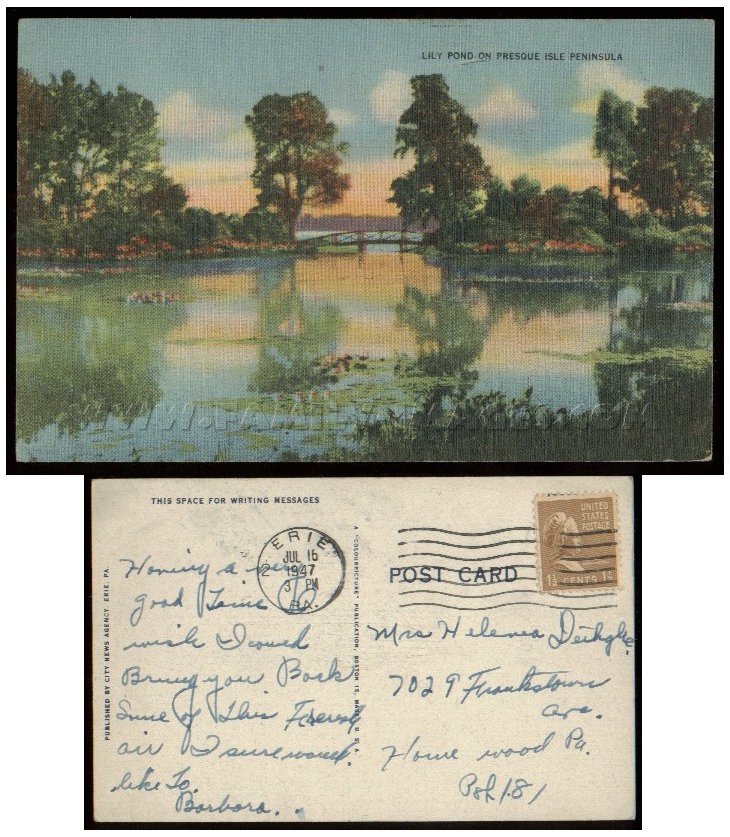 LILY POND ON PRESQUE ISLE PENINSULA
THIS SPACE FOR WRITING MESSAGES
ERIE
JUL 16
2 1947
3 PM
PA.
UNITED
STATES
POSTAGE
1½ CENTS 1½
POST CARD
PUBLISHED BY CITY NEWS AGENCY, ERIE, PA.
A "COLOURPICTURE" PUBLICATION, BOSTON 15, MASS., U.S.A.
Having a very
good Time
wish I could
Bring you Back
Some of This
air I sure would
like To.
Barbara..
Mrs Helenea
7029 Frankstown
ave.
Home wood Pa.